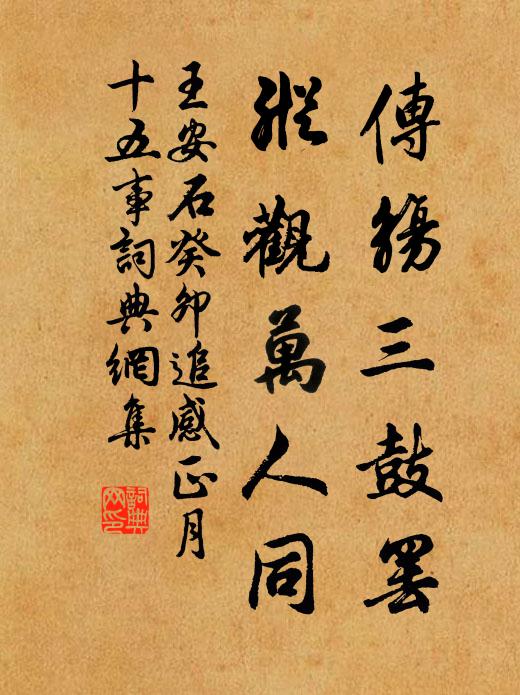 傳觴三鼓罷
縱觀萬人同
王安石癸卯追感正月
十五事詞典網集
詞典網印